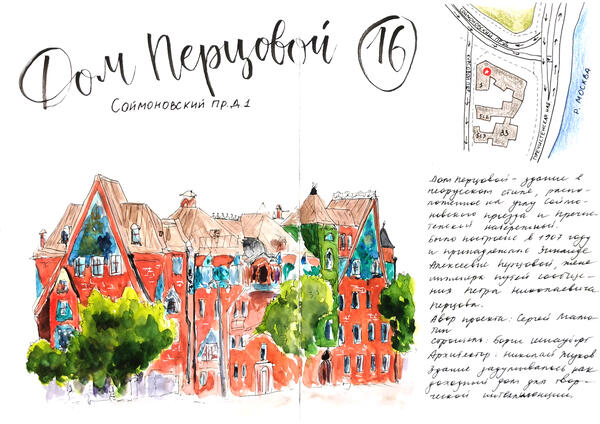 Дом Перцовой
16
Соймоновский пр.д.1
Соймоновский пр-д
Р. Москва
Пречистенская наб
1
33
Дом Перцовой - здание в
неорусском стиле, распо-
ложенное на углу Соймо-
новского проезда и Пречис-
тенской набережной.
Было построено в 1907 году
и принадлежало Зинаиде
Алексеевне Перцовой, жене
инженера путей сообще-
ния Петра Николаевича
Перцова.
Автор проекта: Сергей Малю-
тин
строитель: Борис Шнауберт
Архитектор: Николай Жуков
Здание задумывалось как
доходный дом для твор-
ческой интеллигенции.